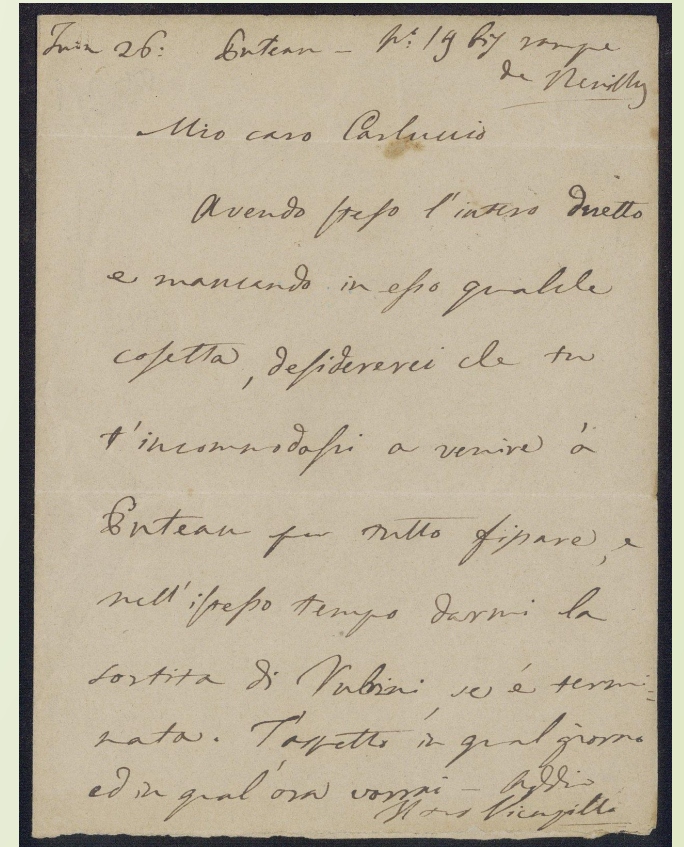 Juin 26: Puteau – Nº. 19 bis rampe
de Neuilly
Mio caro Carluccio
Avendo steso l'intero duetto
e mancando in esso qualche
cosetta, desidererei che tu
t'incommodassi a venire à
Puteau per tutto fissare, e
nell'istesso tempo darmi la
sortita di Rubini, se é termi=
nata. T'aspetto in qual giorno
ed in qual'ora vorrai – Addio